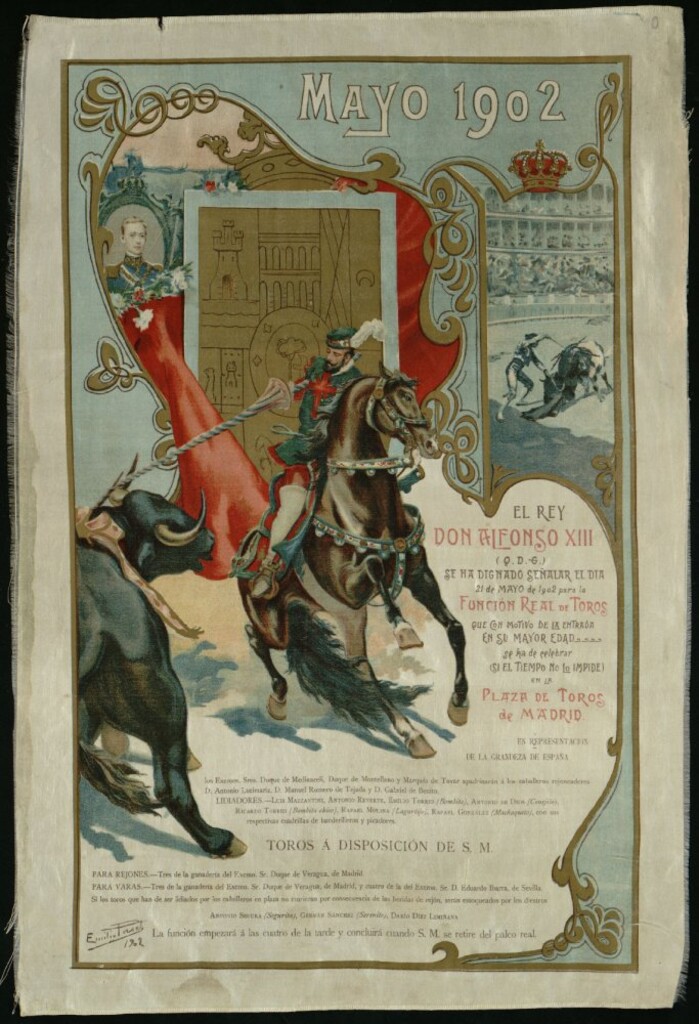 MAYO 1902
EL REY
DON ALFONSO XIII
(Q.D.G.)
SE HA DIGNADO SEÑALAR EL DIA
21 de MAYO de 1902 para la
FUNCIÓN REAL DE TOROS
QUE CON MOTIVO DE LA ENTRADA
EN SU MAYOR EDAD
se ha de celebrar
(SI EL TIEMPO NO LO IMPIDE)
en la
PLAZA DE TOROS
de MADRID.
EN REPRESENTACION
DE LA GRANDEZA DE ESPAÑA
los Excmos. Sres. Duque de Medinaceli, Duque de Montellano y Marqués de Tovar apadrinarán á los caballeros rejoneadores
D. Antonio D. Manuel Romero de Tejada y D. Gabriel de Benito.
LIDIADORES.—LUIS MAZZANTINI, ANTONIO REVERTE, EMILIO TORRES (Bombita), ANTONIO DE DIOS (Conejito),
RICARDO TORRES (Bombita chico), RAFAEL MOLINA (Lagartijo), RAFAEL GONZÁLEZ (Machaquito), con sus
respectivas cuadrillas de banderilleros y picadores.
TOROS Á DISPOSICIÓN DE S. M.
PARA REJONES.—Tres de la ganadería del Excmo. Sr. Duque de Veragua, de Madrid
PARA VARAS.—Tres de la ganadería del Excmo. Sr. Duque de Veragua, de Madrid, y cuatro de la del Excmo. Sr. D. Eduardo Ibarra, de Sevilla.
Si los toros que han de ser lidiados por los caballeros en plaza no murieran por consecuencia de las heridas de rejón, serán estoqueados por los diestros
ANTONIO SEGURA (Segurita), GERMÁN SÁNCHEZ (Serenito), DARÍO DIEZ LIMIÑANA
La función empezará á las cuatro de la tarde y concluirá cuando S. M. se retire del palco real.
1902